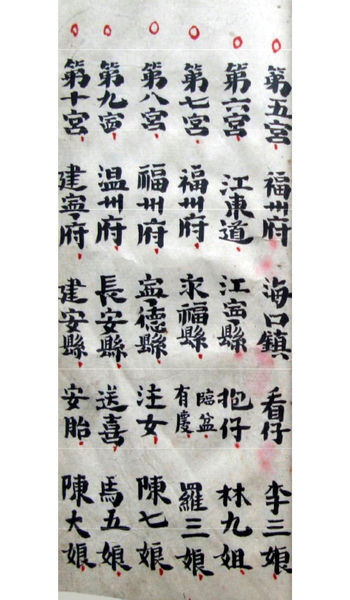 第五宮福州府海口鎮看仔李三娘
第六宮江東道江寍縣抱仔林九姐
第七宮福州府永福縣臨盆有慶羅三娘
第八宮福州府寕德縣注女陳七娘
第九宮温州府長安縣送喜馬五娘
第十宮建寕府建安縣安胎陳大娘